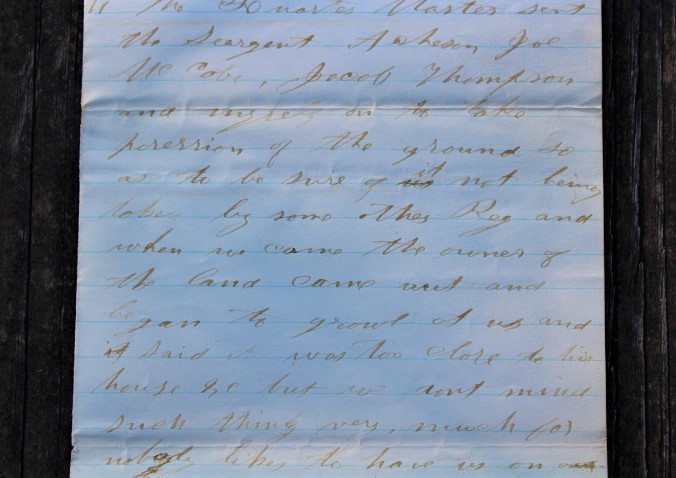 the Quarter Master sent
the Seargent Acheson Joe
McCabe, Jacob Thompson
and myself on to take
possession of the ground so
as to be sure of it not being
taken by some other Reg and
when we came the owner of
the land came out and
began to growl at us and
said it was too close to his
house &c but we dont mind
such thing very much for
nobody likes to have us on